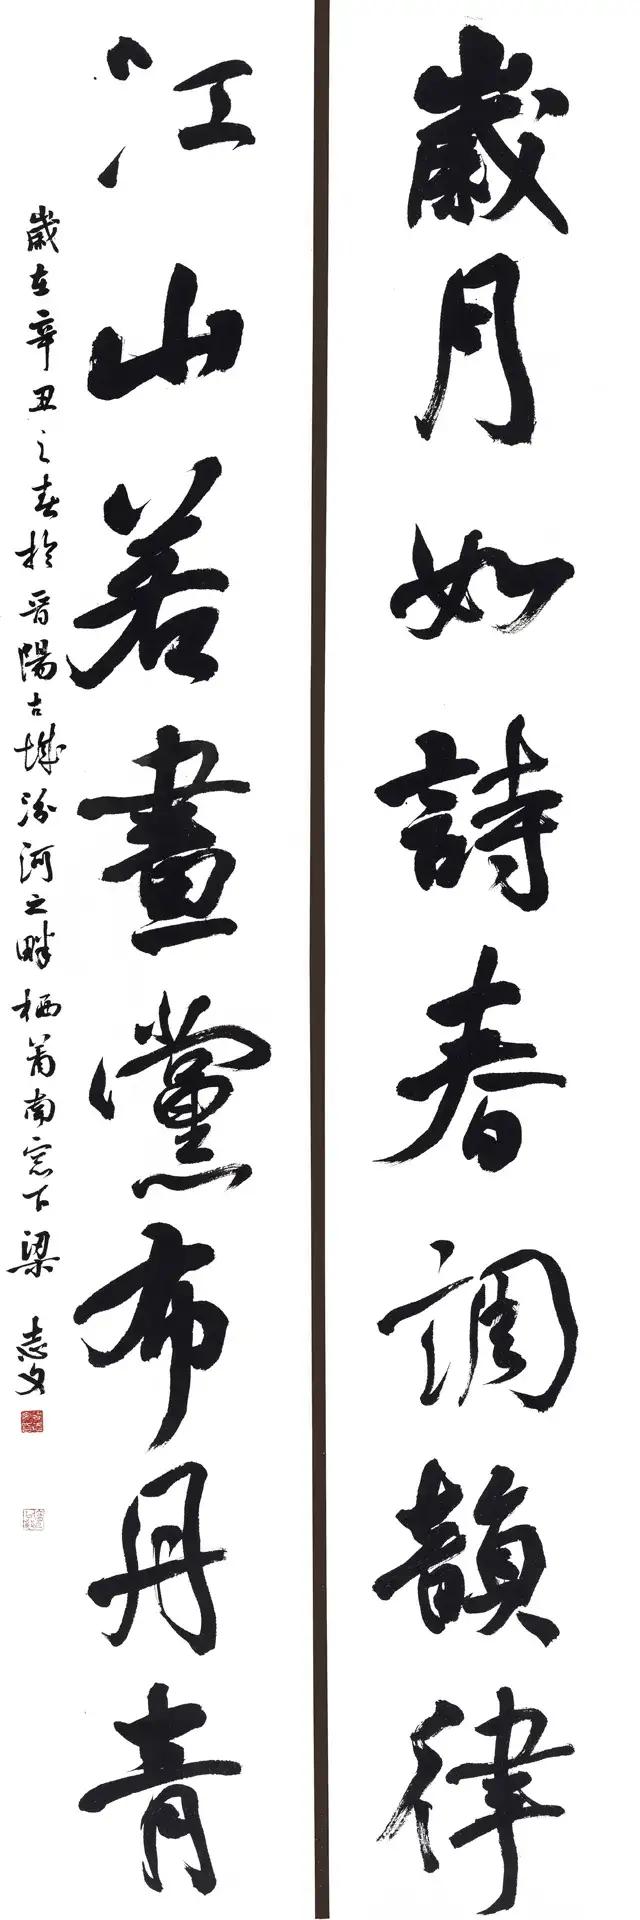 歲月如詩春調韻律
江山若畫黨布丹青
歲在辛丑之春於晋陽古城汾河之畔栖南窓下梁志文